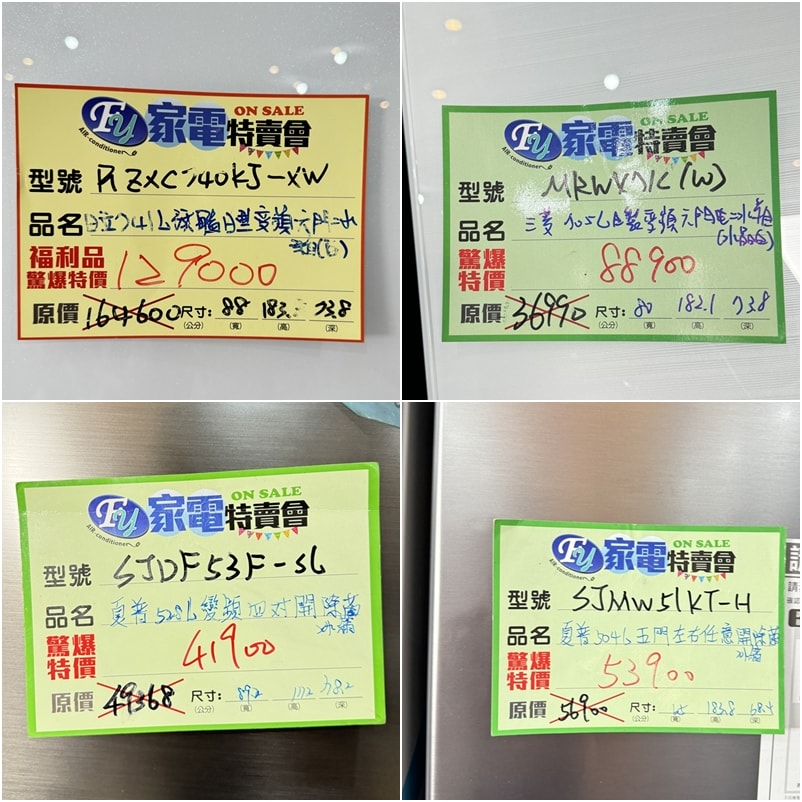 FU 家電特賣會 ON SALE
AIR-conditioner
型號 RZXC740KJ-XW
品名 日立741L 日製變頻六門冰
箱(白)
福利品
驚爆特價 129000
原價 164600 尺寸: 88 183. 73.8
(公分) (寬) (高) (深)
FU 家電特賣會 ON SALE
AIR-conditioner
型號 (W)
品名 三菱 605L日製變頻六門 冰箱
驚爆
特價 88900
原價 36990 尺寸: 80 182.1 73.8
(公分) (寬) (高) (深)
FU 家電特賣會 ON SALE
AIR-conditioner
型號 SJDF53F-SL
品名 夏普528L變頻四对開除菌
冰箱
驚爆
特價 41900
原價 49368 尺寸: 89.2 78.2
(公分) (寬) (高) (深)
FU 家電特賣會 ON SALE
AIR-conditioner
型號 SJMW51KT-H
品名 夏普504L五門左右任意開除菌
冰箱
驚爆
特價 53900
原價 56900 尺寸: 183.8 68.4
(公分) (寬) (高) (深)